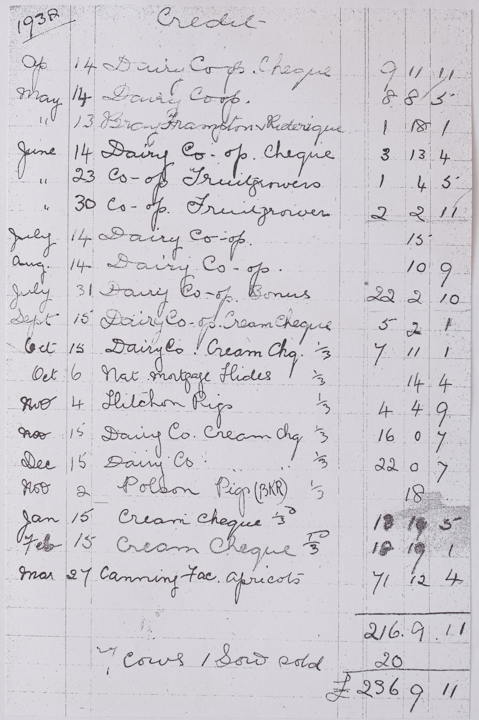 1938 Credit
Ap 14 Dairy Co op. Cheque 9 11 11
May 14 Dairy Coop. 8 8 5
" 13 Bray Frampton 1 18 1
June 14 Dairy Co-op. Cheque 3 13 4
" 23 Co-op Fruitgrowers 1 4 5
" 30 Co-op. Fruitgrowers 2 2 11
July 14 Dairy Co-op. 15
Aug. 14 Dairy Co-op. 10 9
July 31 Dairy Co-op Bonus 22 2 10
Sept 15 Dairy Co-op. Cream Cheque 5 2 1
Oct 15 Dairy Co. Cream Chq. 1/3 7 11 1
Oct 6 Nat Mortgage Hides 1/3 14 4
Nov 4 Pigs 1/3 4 4 9
Nov 15 Dairy Co. Cream Chq 1/3 16 0 7
Dec 15 Dairy Co. 1/3 22 0 7
Nov 2 Polson Pigs (BKR) 1/3 18
Jan 15 Cream Cheque 18 19 5
Feb 15 Cream Cheque 18 19 1
Mar 27 Canning Fac. Apricots 71 12 4
216. 9. 11
7 Cows 1 Sow sold 20
£ 236 9 11